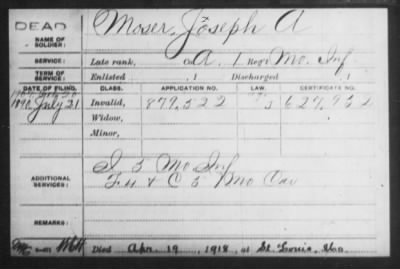 DEAD
NAME OF SOLDIER:
Moser, Joseph A
SERVICE:
Late rank, Co. A, 1 Reg't Mo. Inf
TERM OF SERVICE:
Enlisted , 1 Discharged , 1
DATE OF FILING. CLASS. APPLICATION NO. LAW. CERTIFICATE NO.
1890 July 21 Invalid, 879,522 627,952
Widow,
Minor,
ADDITIONAL SERVICES:
I 5 Mo Inf
F 4 & C 5 Mo Cav
REMARKS:
Died Apr. 19, 1918, at St. Louis, Mo.